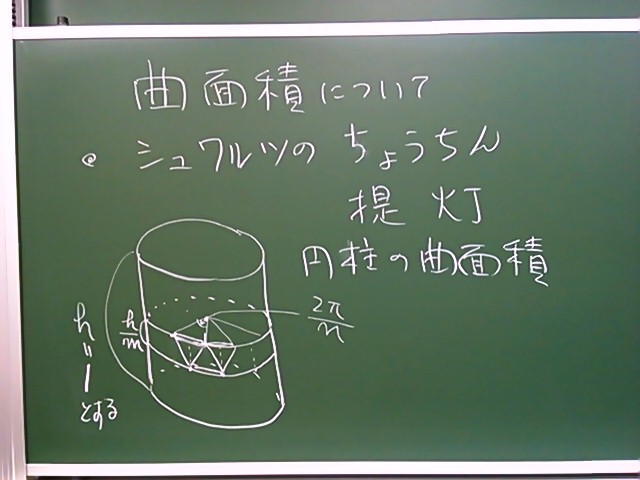 曲面積について
シュワルツの ちょうちん
提灯
円柱の曲面積
2π/n
h/m
h = 1
とする